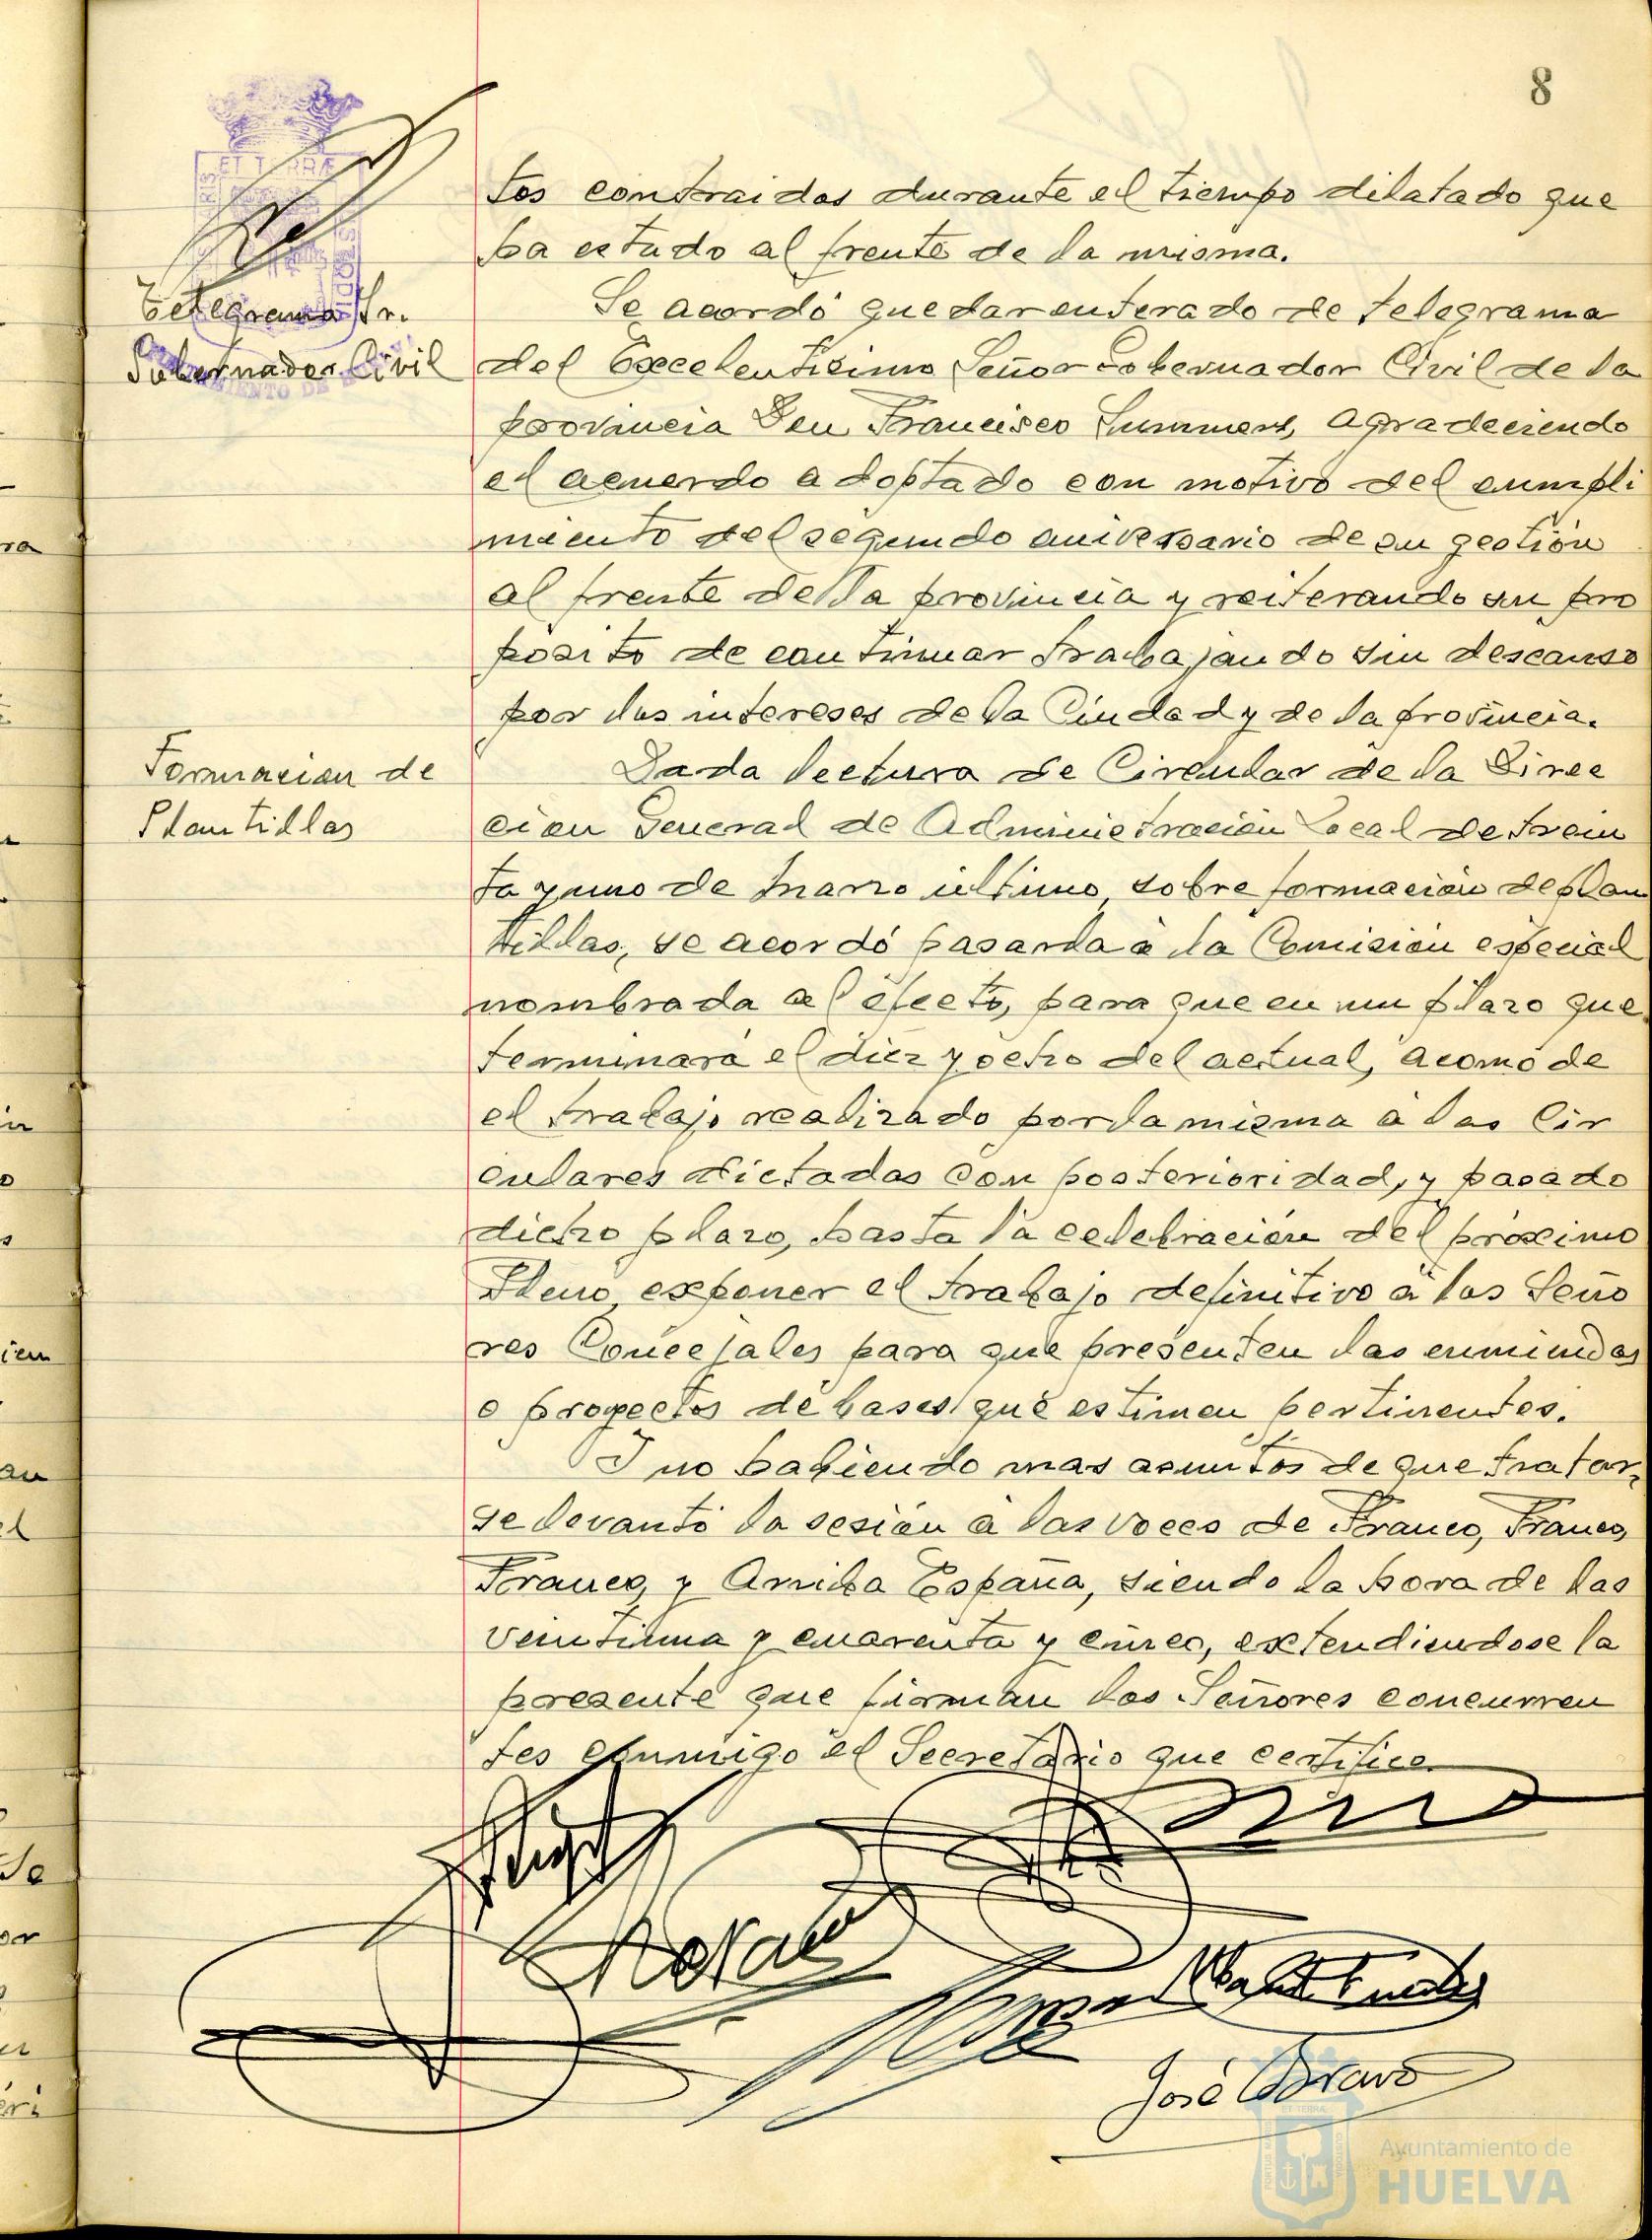 8
tos contraidos durante el tiempo dilatado que
ha estado al frente de la misma.
Telegrama Sr.
Gobernador Civil
Se acordó quedar enterado de telegrama
del Excelentisimo Señor Gobernador Civil de la
provincia Don Francisco Summers, agradeciendo
el acuerdo adoptado con motivo del cumpli
miento del segundo aniversario de su gestión
al frente de la provincia y reiterando su pro
pósito de continuar trabajando sin descanso
por los intereses de la Ciudad y de la provincia.
Formacion de
Plantillas
Dada lectura de Circular de la Direc
cion General de Administración Local de trein
ta y uno de marzo último, sobre formación de plan
tillas, se acordó pasarla á la Comisión especial
nombrada al efecto, para que en un plazo que
terminará el diez y ocho del actual, acomóde
el trabajo realizado por la misma á las Cir
culares dictadas con posterioridad, y pasado
dicho plazo, hasta la celebración del próximo
Pleno, exponer el trabajo definitivo á los Seño
res Concejales para que presenten las enmiendas
o proyectos de bases que estimen pertinentes.
Y no habiendo mas asuntos de que tratar,
se levantó la sesión á las voces de Franco, Franco,
Franco, y Arriba España, siendo la hora de las
veintiuna y cuarenta y cinco, extendiendose la
presente que firman los Señores concurren
tes conmigo el Secretario que certifico.
José Bravo
Ayuntamiento de
HUELVA